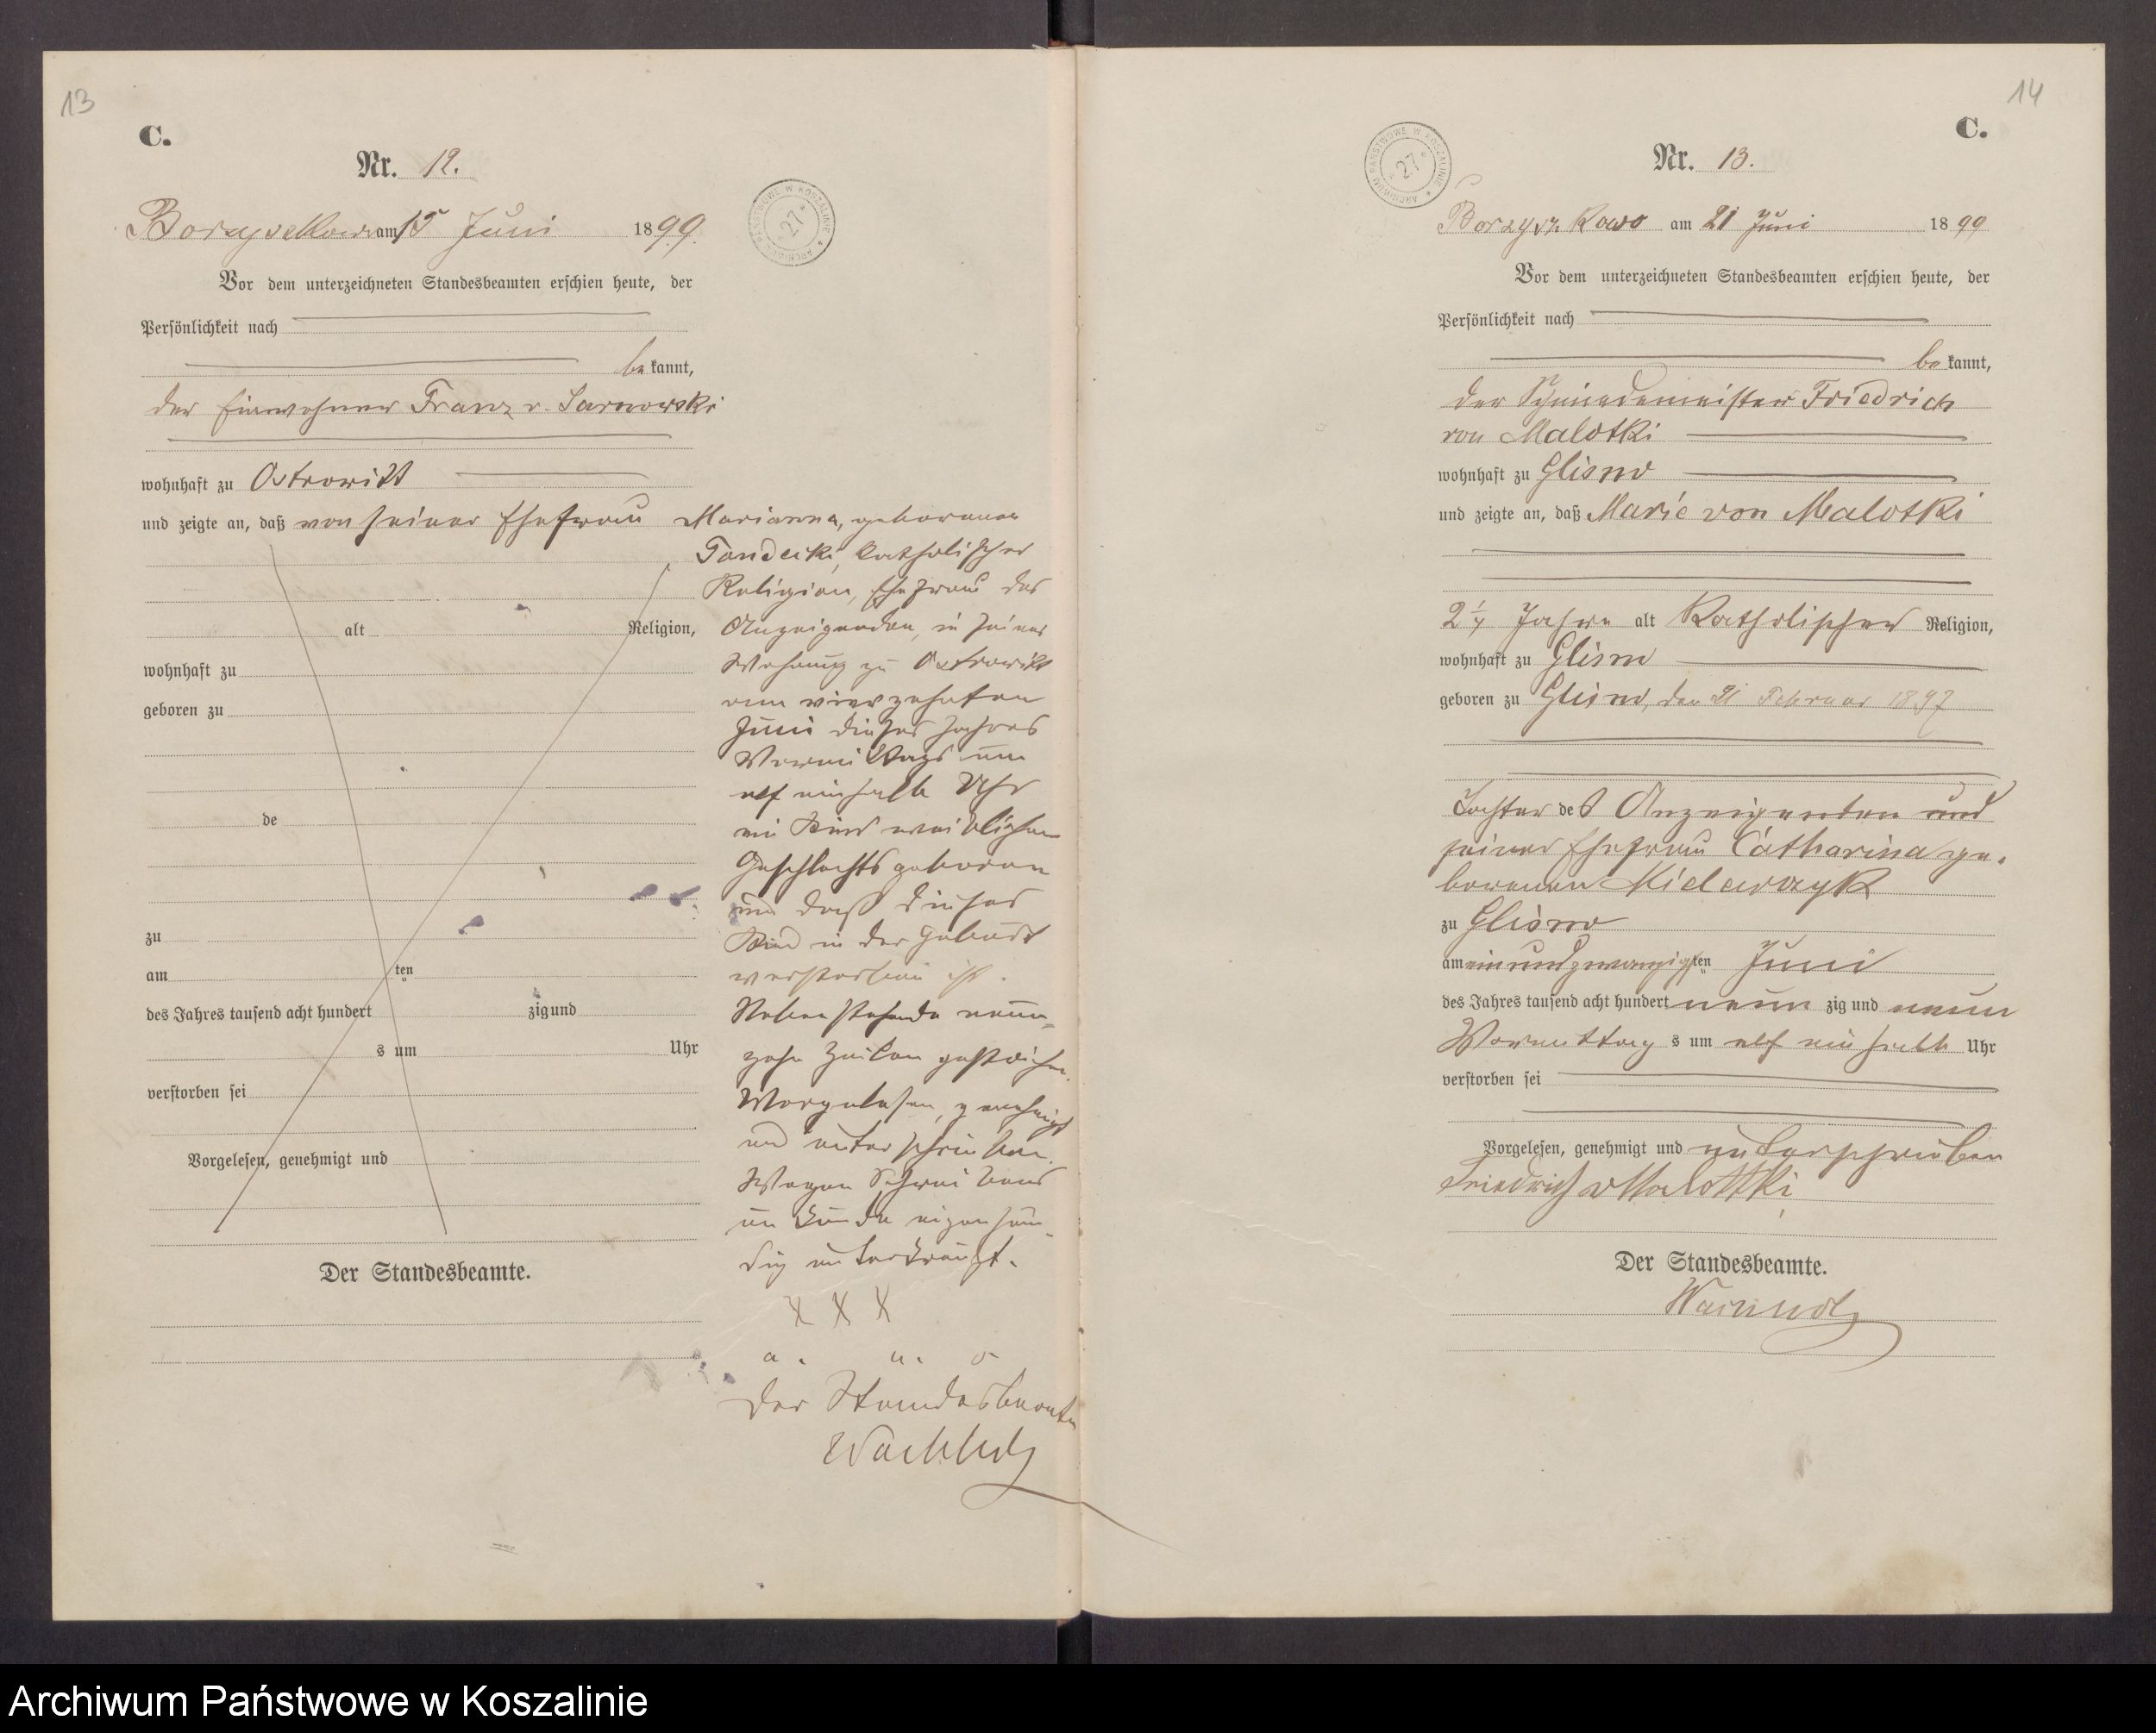 13
C.
Nr. 12.
am 15 Juni 1899.
Vor dem unterzeichneten Standesbeamten erschien heute, der
Persönlichkeit nach
bekannt,
der Einwohner Franz v. Sarnowski
wohnhaft zu Ostrowitt
und zeigte an, daß von seiner Ehefrau Marianna, geborenen
katholischer
Religion, Ehefrau des
alt Religion, Anzeigenden, in seiner
wohnhaft zu Wohnung zu Ostrowitt
geboren zu am vierzehnten
Juni dieses Jahres
Vormittags um
elf einhalb Uhr
de ein Kind weiblichen
Geschlechts geboren
und daß dieses
zu Kind in der Geburt
am ten verstorben ist.
des Jahres tausend acht hundert zig und Nebenstehende neun-
s um Uhr zehn Zeilen gestrichen.
verstorben sei Vorgelesen, genehmigt
und unterschrieben.
Vorgelesen, genehmigt und Wegen Schreibens
unkunde eigenhän-
dig unterkreuzt.
Der Standesbeamte.
X X X
a. u. s
Der Standesbeamte
14
C.
ARCHIWUM PAŃSTWOWE W KOSZALINIE * 27 *
Nr. 13.
Borzyszkowo am 21 Juni 1899
Vor dem unterzeichneten Standesbeamten erschien heute, der
Persönlichkeit nach
bekannt,
der Schmiedemeister Friedrich
von Malotki
wohnhaft zu Glisno
und zeigte an, daß Marie von Malotki
2 1/4 Jahre alt Katholischer Religion,
wohnhaft zu Glisno
geboren zu Glisno, den 21 Februar 1897
Tochter des Anzeigenden und
seiner Ehefrau Catharina ge-
borenen
zu Glisno
am einundzwanzigsten Juni
des Jahres tausend acht hundert neun zig und neun
Vormittag s um elf ein halb Uhr
verstorben sei
Vorgelesen, genehmigt und unterschrieben
Friedrich v Malottki
Der Standesbeamte.
Archiwum Państwowe w Koszalinie